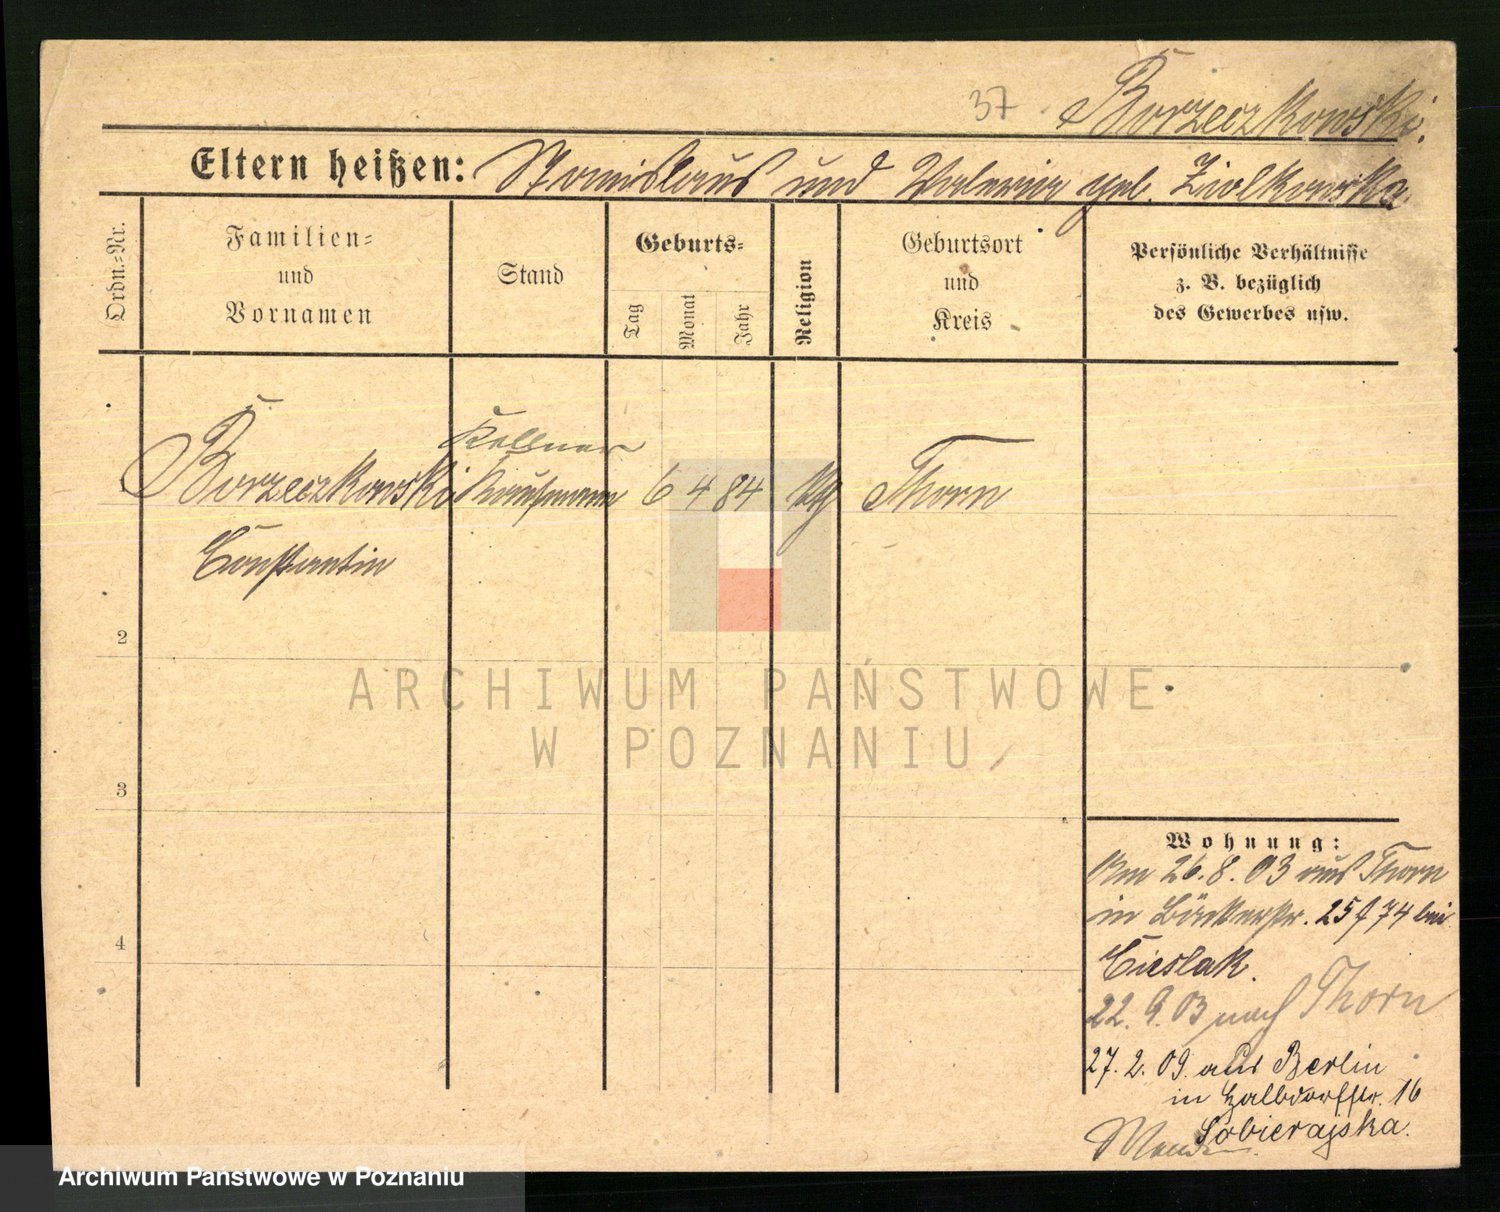 37 Borzeczkowski.
Eltern heißen: Stanislaus und Valeria geb. Ziolkowska
Ordn.-Nr.
Familien-
und
Vornamen
Stand
Geburts-
Tag
Monat
Jahr
Religion
Geburtsort
und
Kreis
Persönliche Verhältnisse
z. B. bezüglich
des Gewerbes usw.
Kellner
Borzeczkowski Kaufmann 6 4 84 kth Thorn
Constantin
2
3
4
ARCHIWUM PAŃSTWOWE
W POZNANIU
Wohnung:
Am 26.8.03 aus Thorn
in Bäckerstr. 25 f 74 bei
Cieslak.
22.9.03 nach Thorn
27.2.09. aus Berlin
in Halbdorfstr. 16
Sobierajska.
Archiwum Państwowe w Poznaniu